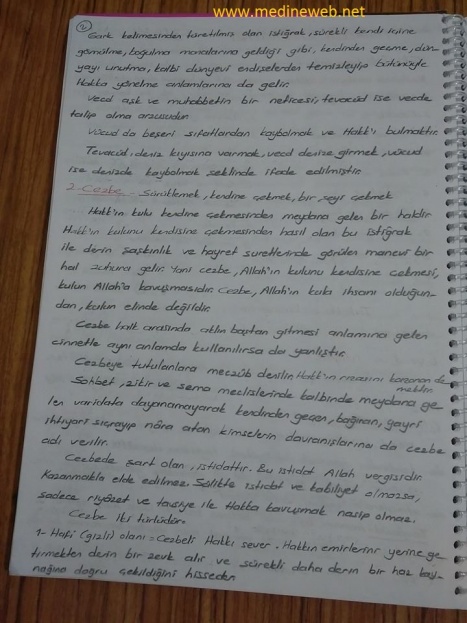 www.medineweb.net
2
Gark kelimesinden türetilmiş olan istiğrak, sürekli kendi içine
gömülme, boğulma manalarına geldiği gibi, kendinden geçme, dün-
yayı unutma, kalbi dünyevi endişelerden temizleyip bütünüyle
Hakka yönelme anlamlarına da gelir.
Vecd aşk ve muhabbetin bir neticesi, tevacüd ise vecde
talip olma arzusudur.
Vücud da beşeri sıfatlardan kaybolmak ve Hakk'ı bulmaktır.
Tevacüd, deniz kıyısına varmak, vecd denize girmek, vücud
ise denizde kaybolmak şeklinde ifade edilmiştir.
2-Cezbe - Sürüklemek, kendine çekmek, bir şeyi çekmek
Hakk'ın kulu kendine çekmesinden meydana gelen bir haldir.
Hakk'ın kulunu kendisine çekmesinden hasıl olan bu istiğrak
ile derin şaşkınlık ve hayret suretlerinde görülen manevi bir
hal zuhura gelir. Yani cezbe, Allah'ın kulunu kendisine çekmesi,
kulun Allah'a kavuşmasıdır. Cezbe, Allah'ın kula ihsanı olduğun-
dan, kulun elinde değildir.
Cezbe halk arasında aklın baştan gitmesi anlamına gelen
cinnetle aynı anlamda kullanılırsa da yanlıştır.
Cezbeye tutulanlara meczüb denilir. Hakk'ın rızasını kazanan de
mektir.
Sohbet, zikir ve sema meclislerinde kalbinde meydana ge
len varidata dayanamayarak kendinden geçen, bağıran, gayri
ihtiyari sıçrayıp nâra atan kimselerin davranışlarına da cezbe
adı verilir.
Cezbede şart olan, istidattır. Bu istidat Allah vergisidir.
Kazanmakla elde edilmez. Salikte istidat ve kabiliyet olmazsa,
sadece riyâzet ve tavsiye ile Hakka kavuşmak nasip olmaz.
Cezbe iki türlüdür.
1- Hafi (gizli) olanı = Cezbeli Hakkı sever. Hakkın emirlerini yerine ge
tirmekten derin bir zevk alır ve sürekli daha derin bir haz kay-
nağına doğru çekildiğini hisseder.